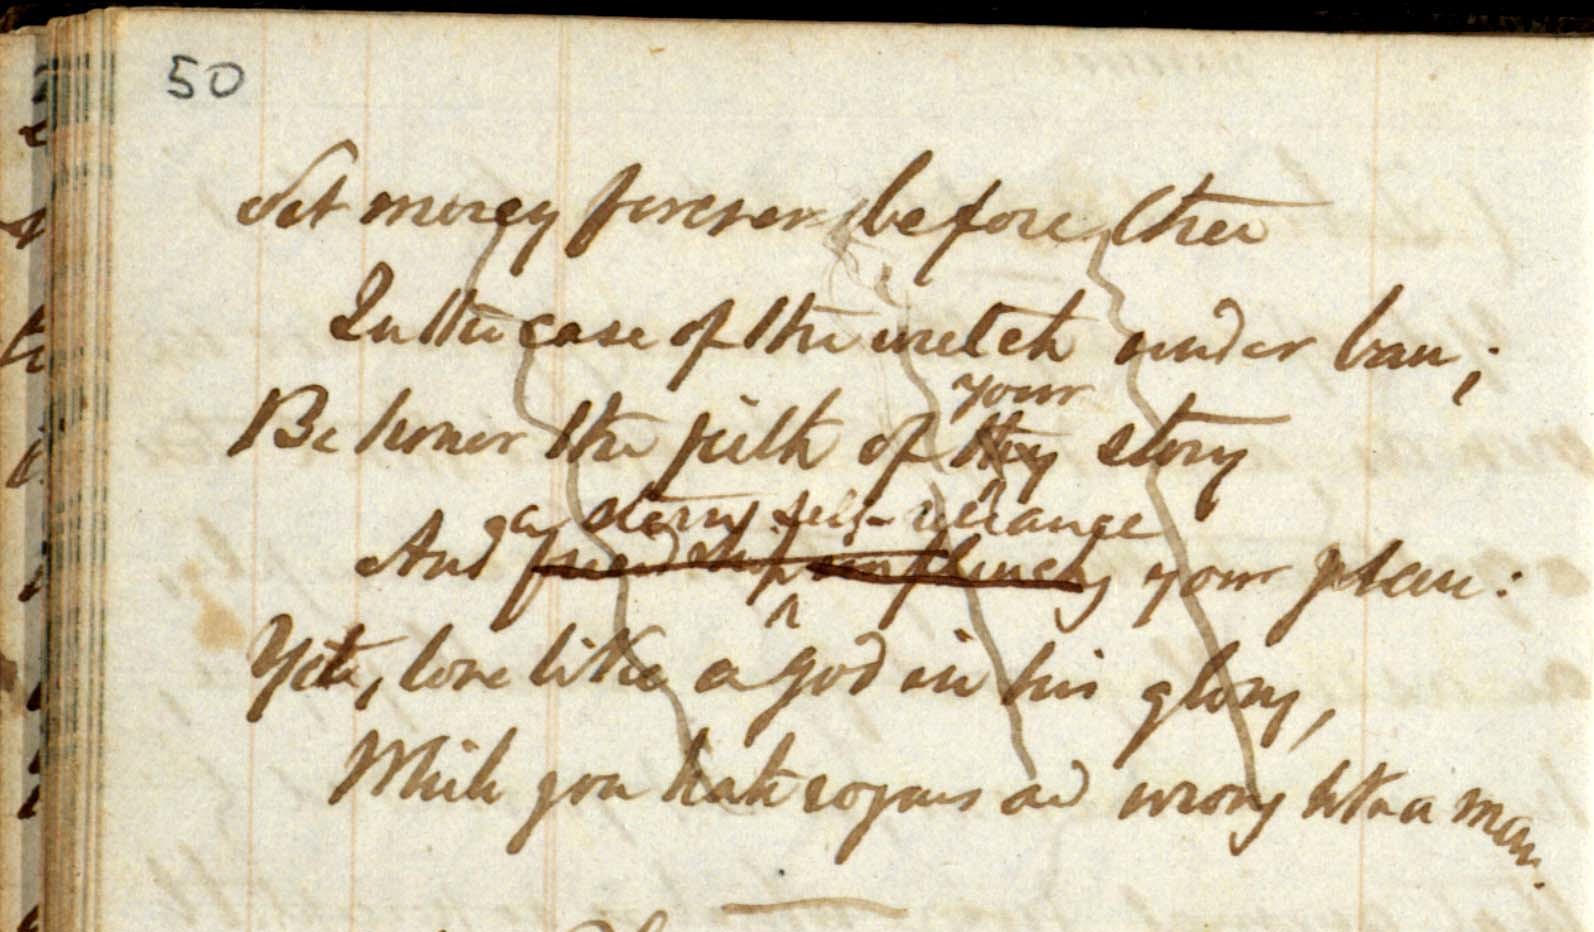 50
Set mercy forever before thee
In the case of the wretch under ban;
your
Be honor the pith of thy story
a stern self-reliance
And friendship unflinching your plan:
Yet, love like a god in his glory,
While you hate rogues and wrong like a man.